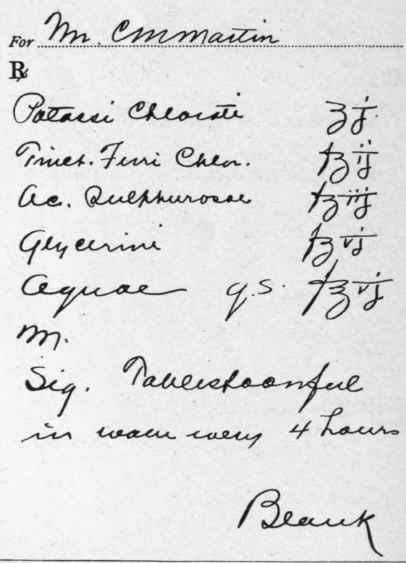 For Mr. CM Martin
℞
Potassi Chlorati ʒ j.
Tinct. Ferri Chlor. fʒ ij
Ac. Sulphurosae fʒ iij
Glycerini fʒ vj
Aquae q.s. f℥ vj
M.
Sig. Tablespoonful
in water every 4 hours
Blank